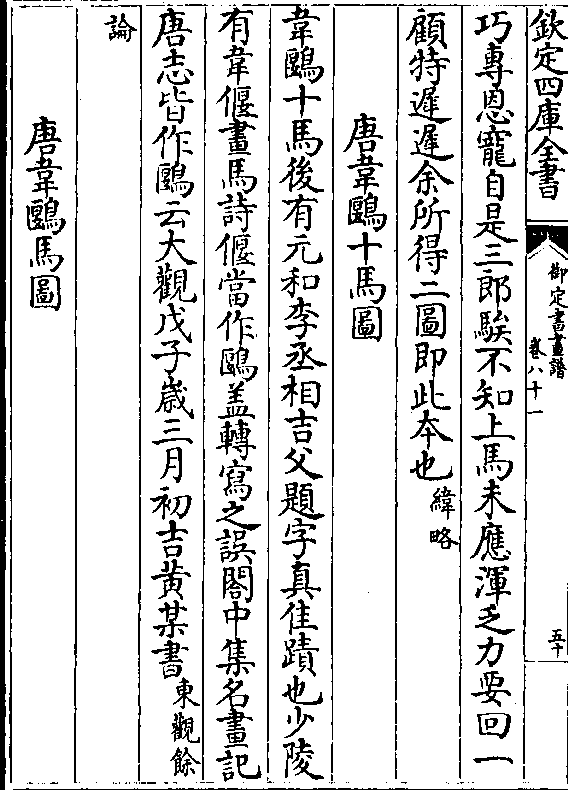 欽定四庫全書
御定書畫譜
卷八十一
五十
巧專恩寵自是三郎騃不知上馬未應渾乏力要回一
顧特遲遲余所得二圖即此本也緯略
唐韋鷗十馬圖
韋鷗十馬後有元和李丞相吉父題字真佳蹟也少陵
有韋偃畫馬詩偃當作鷗葢轉寫之誤閣中集名畫記
唐志皆作鷗云大觀戊子歲三月初吉黃某書東觀餘
論
唐韋鷗馬圖